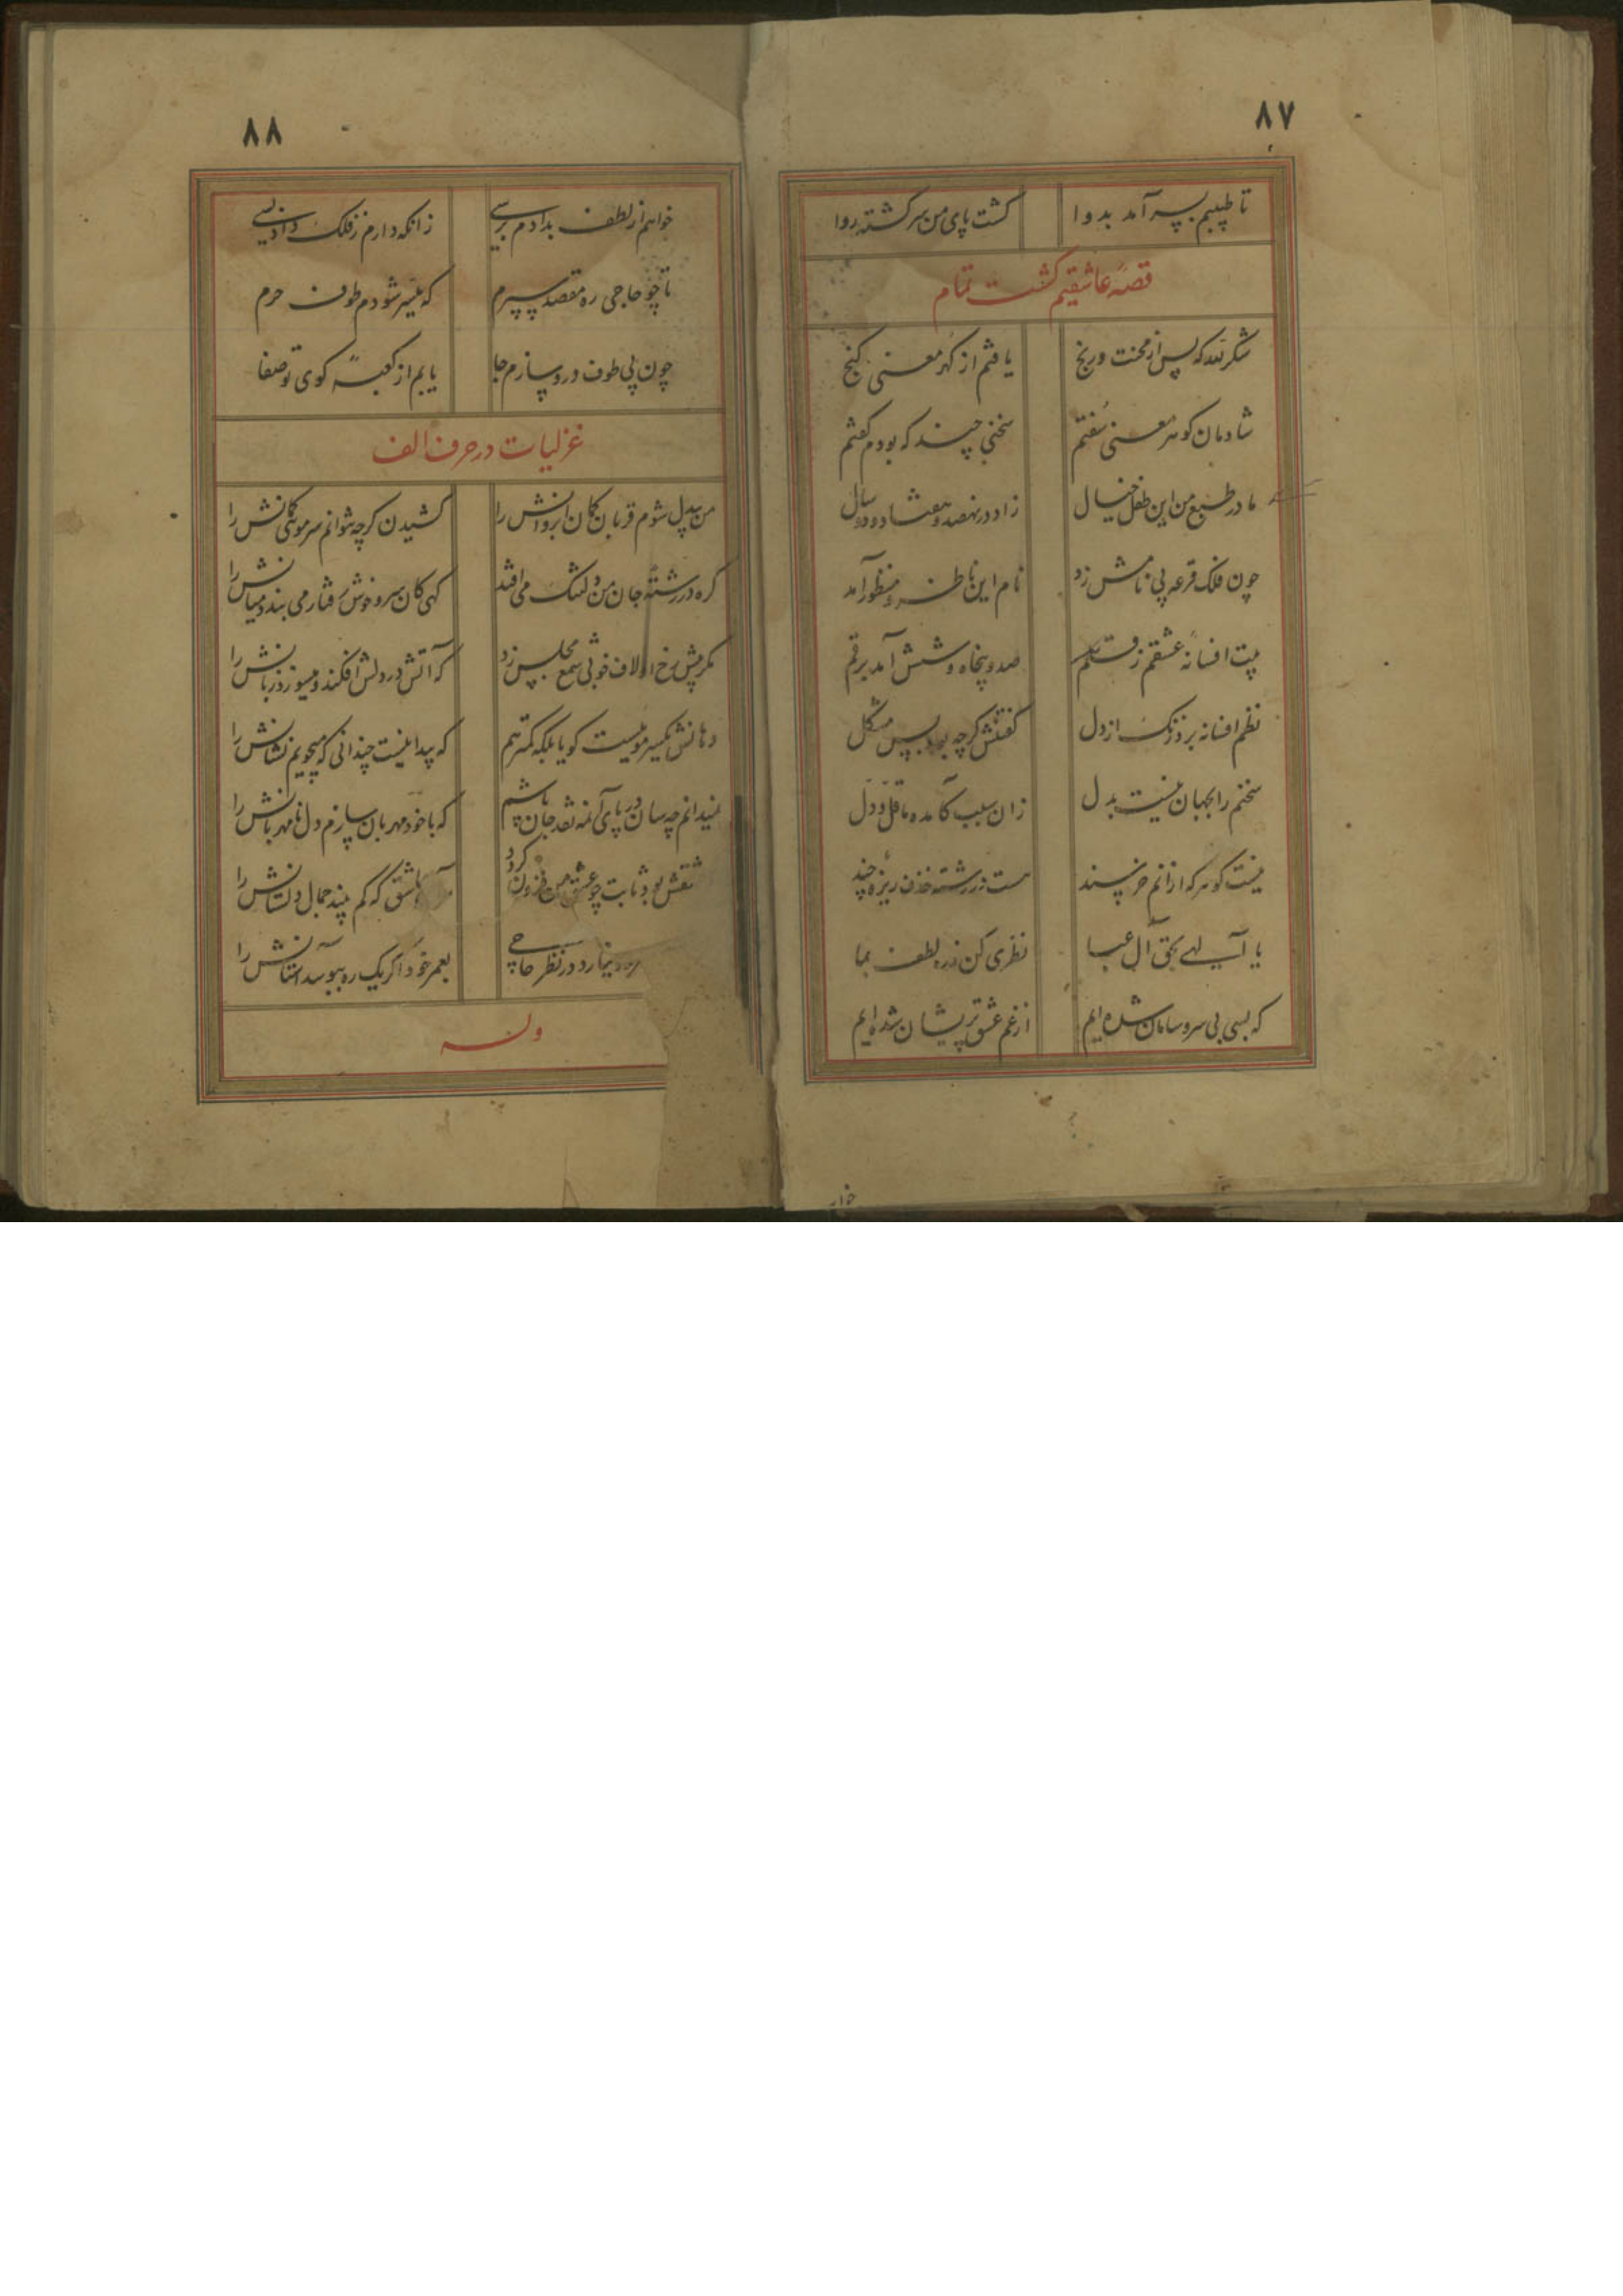 ۸۷
تا طبیبم بسر آمد بدوا گشت پای من سرگشته روا
قصهٔ عاشقیم گشت تمام
شکر لله که پس از محنت و رنج یافتم از گهر معنی گنج
شادمان گوهر معنی سفتم سخنی چند که بودم گفتم
مادر طبع من این طفل خیال زاد در نهصد و هفتاد و دو سال
چون فلک قرعه پی نامش زد نام این ناظر و منظور آمد
بیت افسانهٔ عشقم ز قلم صد و پنجاه و شش آمد برقم
نظم افسانه برد زنگ از دل گفتنش گرچه بود بس مشکل
سخنم را بجهان نیست بدل زان سبب کامده ما قل و دل
نیست گوهر که ازانم خرسند هست در رشته خزف ریزهٔ چند
یا آلهی بحق آل عبا نظری کن ز ره لطف بما
که بسی بی سر و سامان شده ایم از غم عشق پریشان شده ایم
۸۸
خواهم از لطف بدادم برسی زانکه دارم ز فلک داد بسی
تا چو حاجی ره مقصد سپرم که میسر شودم طوف حرم
چون پی طوف درو سازم جا یابم از کعبهٔ کوی تو صفا
غزلیات در حرف الف
من بیدل شوم قربان کمان ابروانش را کشیدن گرچه نتوانم سر موئی کمانش را
گره در رشتهٔ جان من دلتنگ می افتد گهی کان سرو خوش رفتار می بندد میانش را
مگر پیش رخ او لاف خوبی شمع مجلس زد که آتش در دلش افکند و میسوزد زبانش را
دهانش یکسر مو نیست گویا بلکه کمتر هم که پیدا نیست چندانی که میجویم نشانش را
نمیدانم چه سان در پای آن مه نقد جان پاشم که با خود مهربان سازم دل نامهربانش را
عشقش بود ثابت چو عشق من فزون گردد عاشق که کم بیند جمال دلستانش را
نیارد در نظر حاجی بعمر خود اگر یک ره ببوسد آستانش را
وله